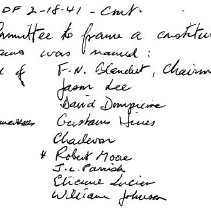 DF 2-18-41 - Cont.
ommittee to frame a constitu
was named:
of F. N. Blanchet, Chairm
Jason Lee
David Donpierre
Gustavus Hines
Charlevon
* Robert Moore
J. L. Parrish
Etienne Lucier
William Johnson